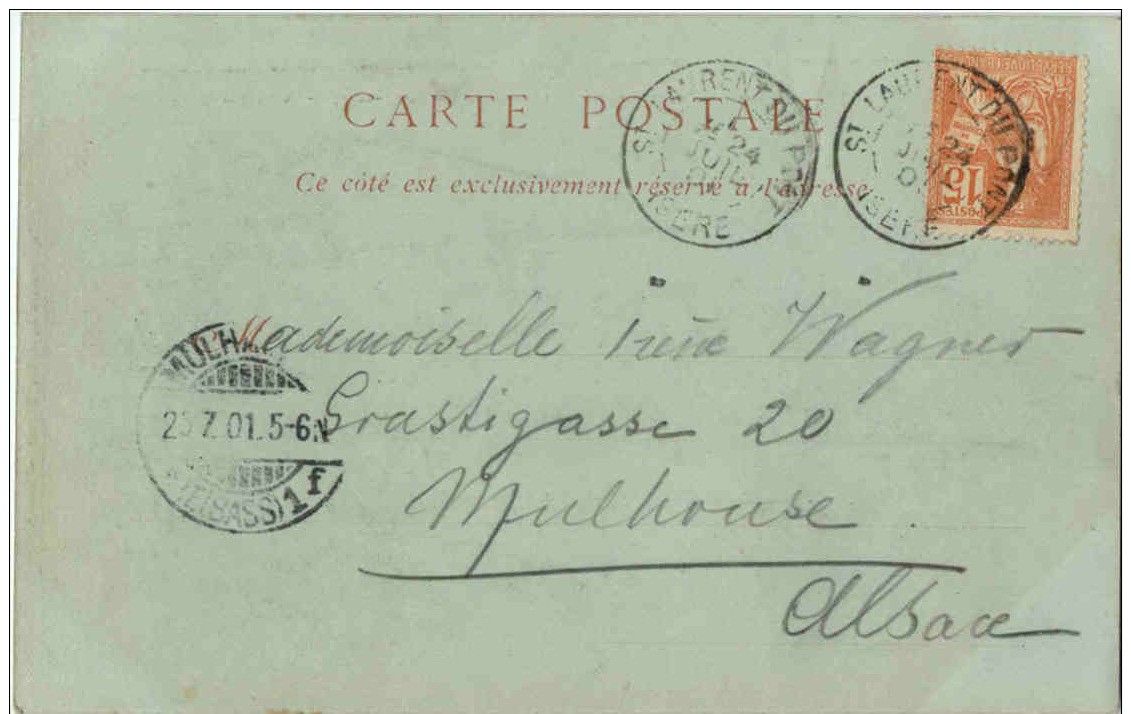 CARTE POSTALE
Ce côté est exclusivement réservé à l'adresse
ST LAURENT DU PONT
24
JUIL
01
ISERE
ST LAURENT DU PONT
24
ISERE
15
POSTES
Mademoiselle Irène Wagner
Grastigasse 20
Mulhouse
Alsace
MULH
7.01.5-6N
(ELSASS) 1 f